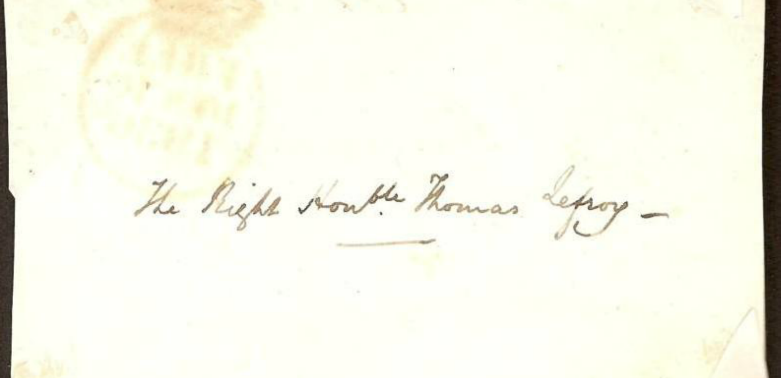 The Right Honble. Thomas Lefroy —